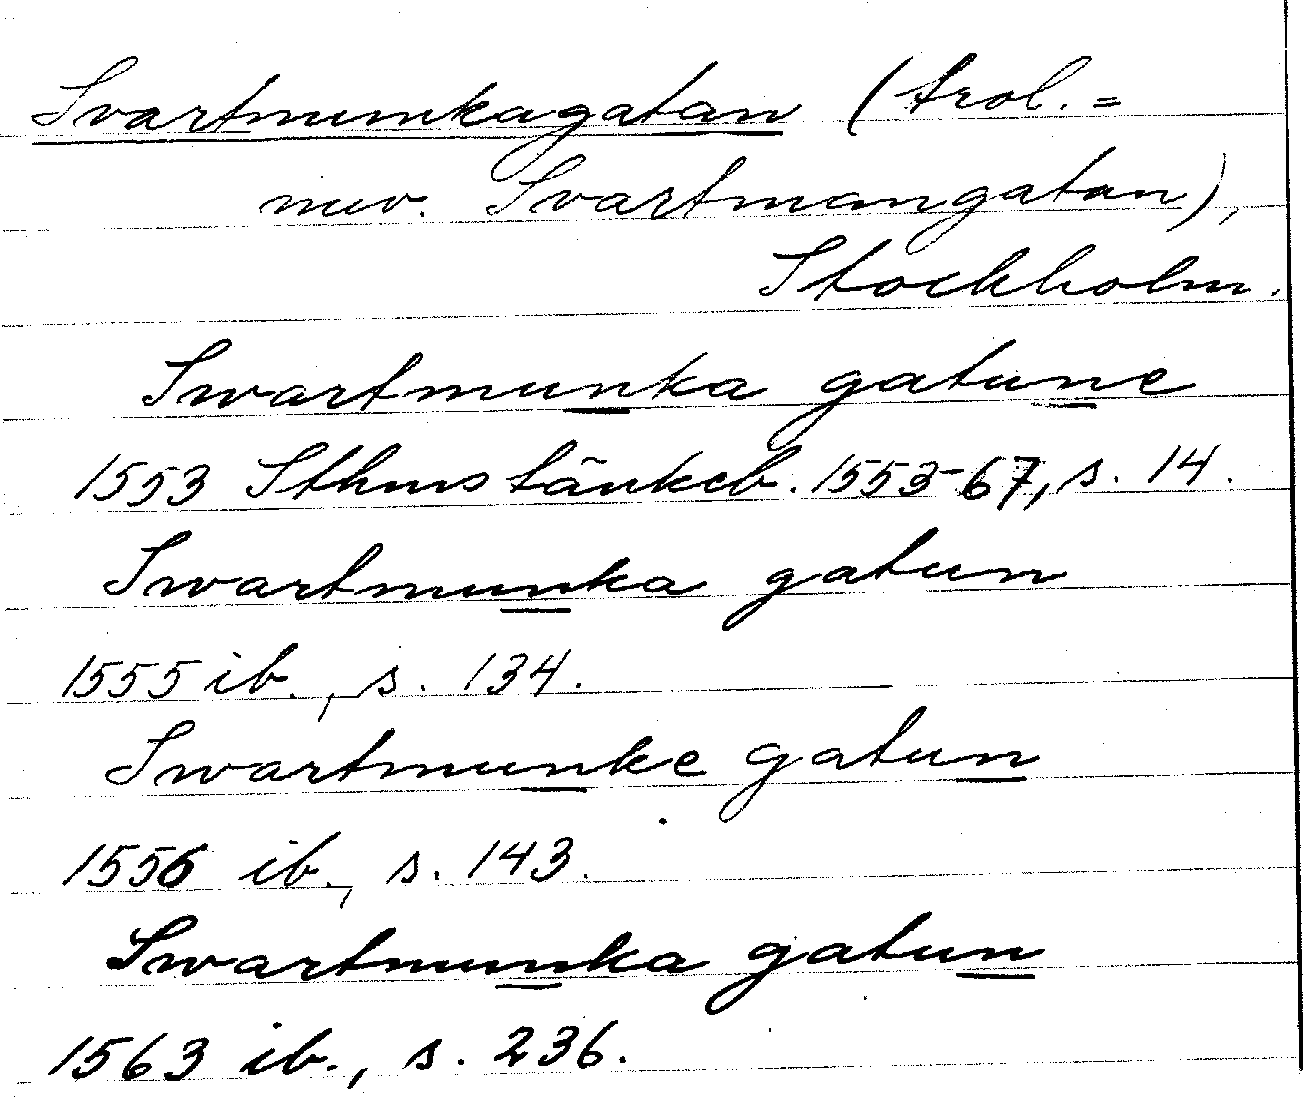 Svartmunkagatan (trol. =
nuv. Svartmangatan),
Stockholm.
Swartmunka gatune
1553 Sthms tänkeb. 1553-67, s. 14.
Swartmunka gatun
1555 ib., s. 134.
Swartmunke gatun
1556 ib., s. 143.
Swartmunka gatun
1563 ib., s. 236.